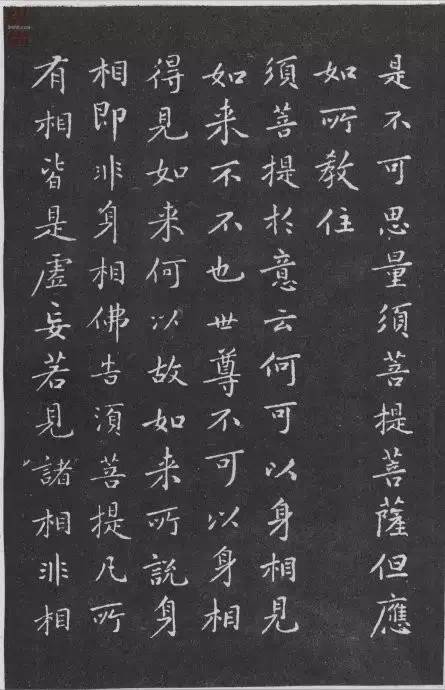 是不可思量須菩提菩薩但應
如所教住
須菩提於意云何可以身相見
如来不不也世尊不可以身相
得見如来何以故如来所說身
相即非身相佛告湏菩提凡所
有相皆是虛妄若見諸相非相